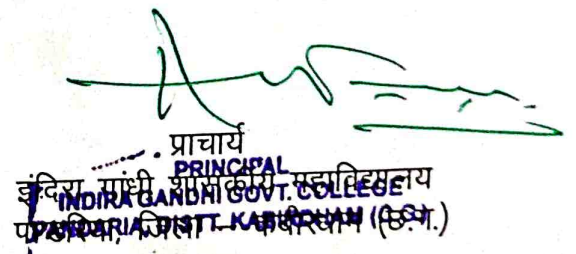 प्राचार्य
PRINCIPAL
इंदिरा गांधी शासकीय महाविद्यालय
INDIRA GANDHI GOVT. COLLEGE
पण्डरिया, जिला – कबीरधाम (छ.ग.)
PANDARIA, DISTT. KABIRDHAM (C.G.)